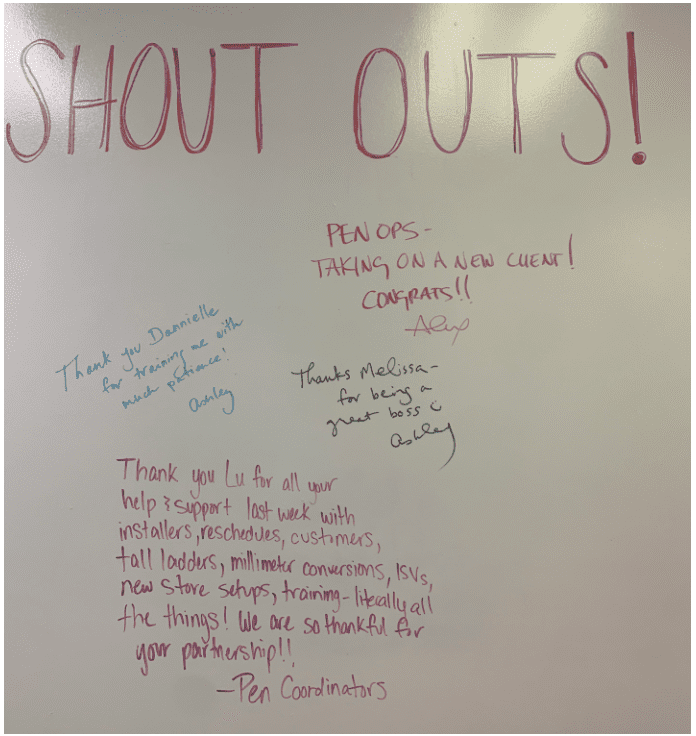 SHOUT OUTS!
PEN OPS-
TAKING ON A NEW CLIENT!
CONGRATS!!
Alex
Thank you Dannielle
for training me with
much patience!
Ashley
Thanks Melissa-
for being a
great boss
Ashley
Thank you Lu for all your
help & support last week with
installers, reschedules, customers,
tall ladders, millimeter conversions, ISVs,
new store setups, training-literally all
the things! We are so thankful for
your partnership!!
-Pen Coordinators